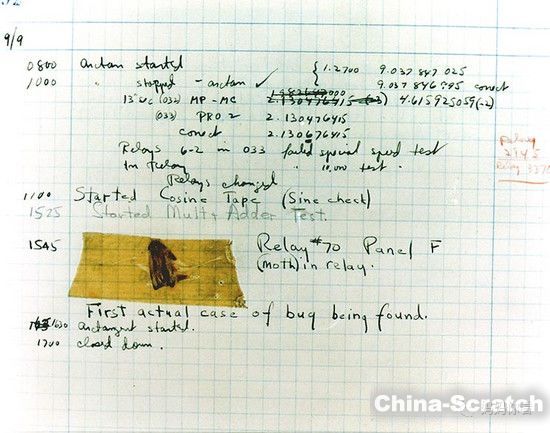 9/9
0800 arctan started { 1.2700 9.037 847 025
1000 " stopped - arctan ✓ 9.037 846 995 correct
(032) MP - MC 2.130476415 4.615925059(-2)
(033) PRO 2 2.130476415
correct 2.130676415
Relays 6-2 in 033 failed special speed test
In Relay " 10,000 test .
Relay
2145
Relay 3370
Relays changed
1100 Started Cosine Tape (Sine check)
1525 Started Mult + Adder Test.
1545 Relay #70 Panel F
(moth) in relay.
First actual case of bug being found.
1630 arctangent started.
1700 closed down.
China-Scratch